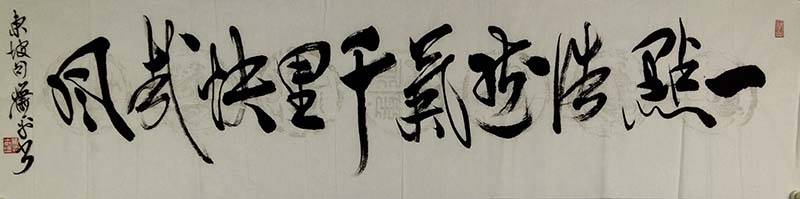 一點浩然氣千里快哉風
东坡句